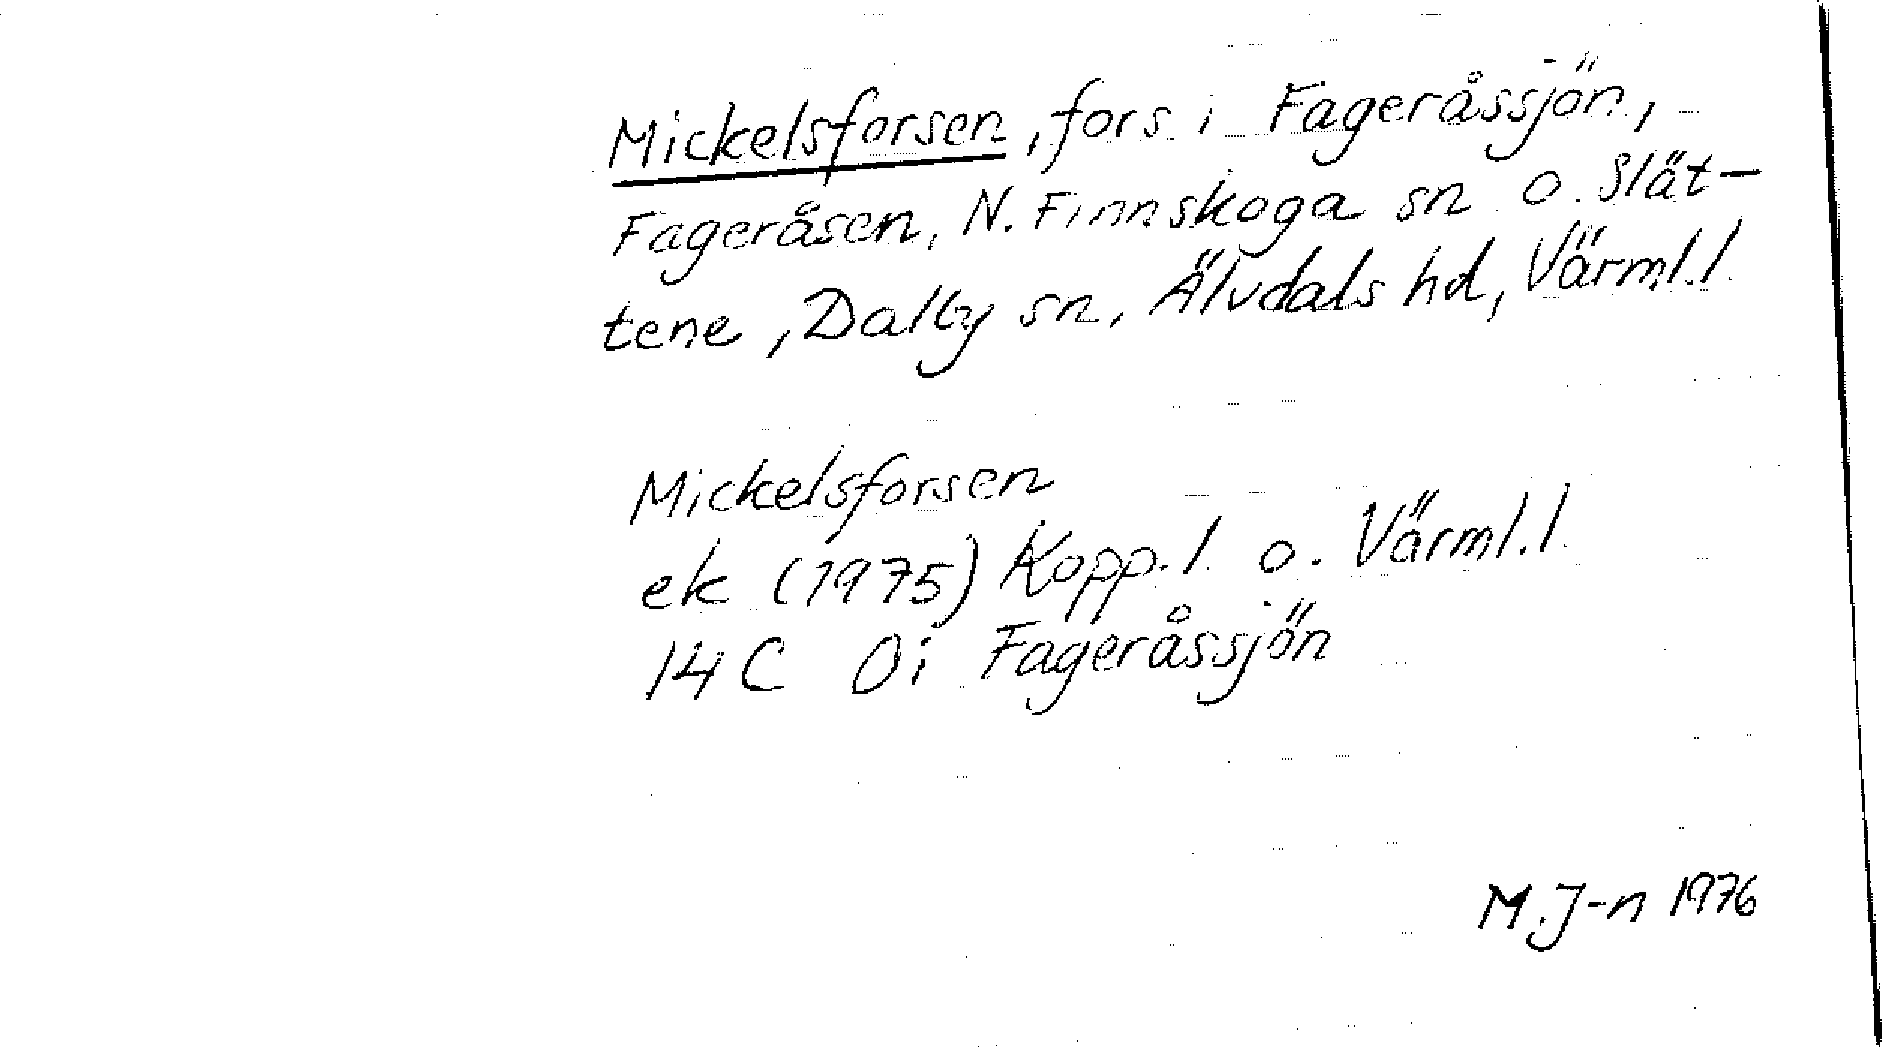 Mickelsforsen, fors i Fageråssjön,
Fageråsen, N. Finnskoga sn o. Slät-
tene, Dalby sn, Älvdals hd, Värml.l.
Mickelsforsen
ek (1975) Kopp.l. o. Värml.l.
14 C 0i Fageråssjön
M.J-n 1976